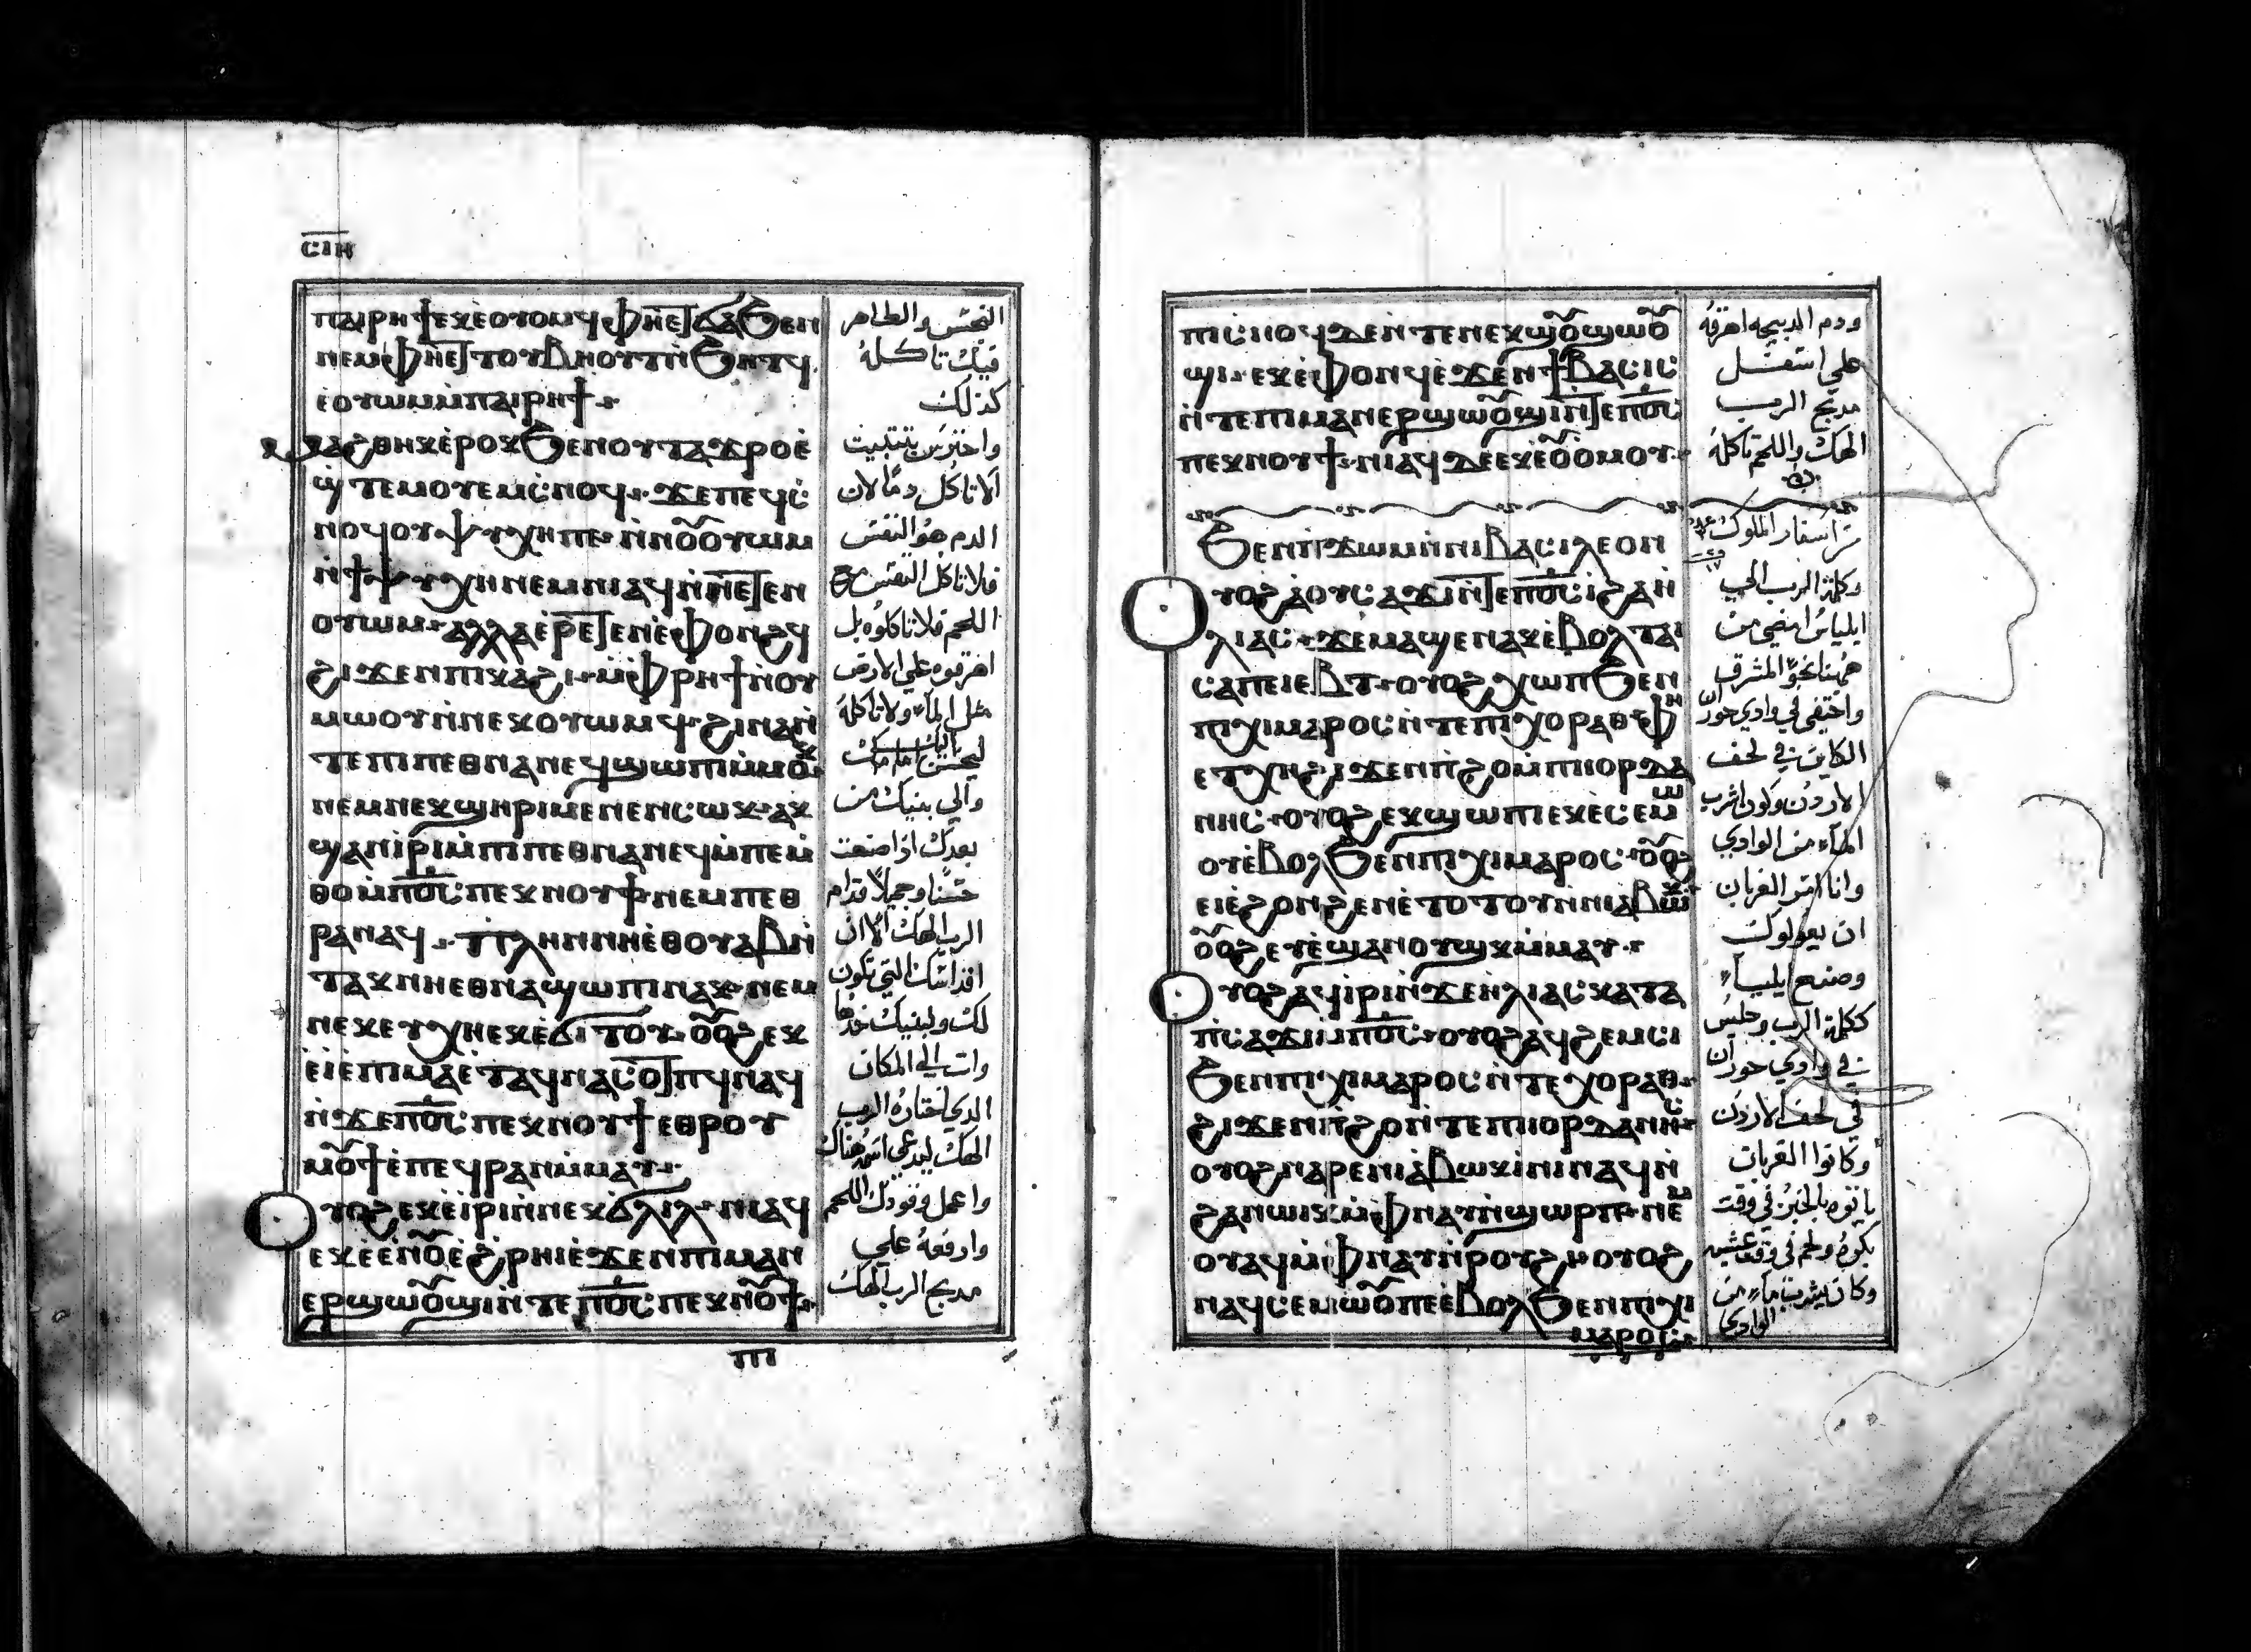 ⲥⲓⲏ
ⲡⲁⲓⲣⲏϯ ⲉⲕⲉⲟⲩⲟⲙϥ ⲫⲏⲉⲧϭⲁϧⲉⲙ
ⲛⲉⲙ ⲫⲏⲉⲧⲧⲟⲩⲃⲏⲟⲩⲧ ⲛ̀ϧⲏⲧϥ
ⲉⲟⲩⲱⲙ ⲙ̀ⲡⲁⲓⲣⲏϯ
ⲙⲁϩⲑⲏⲕ ⲉⲣⲟⲕ ϧⲉⲛ ⲟⲩⲧⲁϫⲣⲟ ⲉ̀
ϣⲧⲉⲙⲟⲩⲉⲙ ⲥ̀ⲛⲟϥ ϫⲉ ⲡⲉϥⲥ̀
ⲛⲟϥ ⲟⲩⲯⲩⲭⲏ ⲡⲉ ⲛ̀ⲛⲟ̅ⲟⲩⲱⲙ
ⲛ̀ϯⲯⲩⲭⲏ ⲛⲉⲙ ⲛⲓⲁϥ ⲛ̀ⲛⲉⲧⲉⲛ
ⲟⲩⲱⲙ ⲁⲗⲗⲁ ⲉ̀ⲣⲉⲧⲉⲛⲉ̀ⲫⲟⲛϩϥ
ϩⲓϫⲉⲛ ⲡⲓⲕⲁϩⲓ ⲙ̀ⲫⲣⲏϯ ⲛ̀ⲟⲩ
ⲙⲱⲟⲩ ⲛ̀ⲛⲉⲕⲟⲩⲱⲙϥ ϩⲓⲛⲁ ⲛ̀
ⲧⲉ ⲡⲓⲡⲉⲑⲛⲁⲛⲉϥ ϣⲱⲡⲓ ⲙ̀ⲙⲟⲕ
ⲛⲉⲙ ⲛⲉⲕϣⲏⲣⲓ ⲙⲉⲛⲉⲛⲥⲱⲕ ⲁⲕ
ϣⲁⲛⲓ̀ⲣⲓ ⲙ̀ⲡⲓⲡⲉⲑⲛⲁⲛⲉϥ ⲙ̀ⲡⲉⲙ̀
ⲑⲟ ⲙ̀ⲡⲟ̅ⲥ̅ ⲡⲉⲕⲛⲟⲩϯ ⲛⲉⲙ ⲡⲉⲑ
ⲣⲁⲛⲁϥ ⲡⲗⲏⲛ ⲛⲏⲉ̀ⲑⲟⲩⲁⲃ ⲛ̀
ⲧⲁⲕ ⲛⲏⲉⲑⲛⲁϣⲱⲡⲓ ⲛⲁⲕ ⲛⲉⲙ
ⲛⲉⲕⲉⲩⲭⲏ ⲉⲕⲉ̀ϭⲓⲧⲟⲩ ⲟ̅ⲟ̅ϩ ⲉⲕ
ⲉ̀ⲓ̀ ⲉ̀ⲡⲓⲙⲁ ⲉ̀ⲧⲁϥⲛⲁⲥⲟⲧⲡϥ ⲛⲁϥ
ⲛ̀ϫⲉ ⲡⲟ̅ⲥ̅ ⲡⲉⲕⲛⲟⲩϯ ⲉⲑⲣⲟⲩ
ⲙⲟ̅ϯ ⲉ̀ⲡⲉϥⲣⲁⲛ ⲙ̀ⲙⲁⲩ
ⲟⲩⲟϩ ⲉⲕⲉ̀ⲓ̀ⲣⲓ ⲛ̀ⲛⲉⲕϭⲗⲓⲗ ⲛⲓⲁϥ
ⲉⲕⲉ̀ⲉ̀ⲛⲟ̅ ⲉ̀ϩⲣⲏⲓ ⲉ̀ϫⲉⲛ ⲡⲓⲙⲁⲛ
ⲉⲣϣⲱⲟ̅ϣⲓ ⲛ̀ⲧⲉ ⲡⲟ̅ⲥ̅ ⲡⲉⲕⲛⲟ̅ϯ
ⲡⲓ
النجس والطاهر
فيك تاكله
كذلك
واحترس بتثبيت
ألا تاكل دمًا لان
الدم هو النفس
فلا تاكل النفس مع
اللحم فلا تاكلوه بل
اهرقوه علي الارض
مثل الماء ولا تاكله
وألي بنيك من
بعدك اذا صنعت
حسنًا وجميلًا قدام
الرب الهك الا ان
اقداسك التي تكون
لك ولبنيك خذها
وات الي المكان
الدي اختاره الرب
الهك ليدعى اسمه هناك
واعمل وقودك اللحم
وارفعه علي
مدبح الرب الهك
ⲡⲓⲥ̀ⲛⲟϥ ⲇⲉ ⲛ̀ⲧⲉ ⲛⲉⲕϣⲟ̅ϣⲱⲟ̅
ϣⲓ ⲉⲕⲉ̀ⲫⲟⲛϥ ⲉ̀ϫⲉⲛ ϯⲃⲁⲥⲓⲥ
ⲛ̀ⲧⲉ ⲡⲓⲙⲁⲛⲉⲣϣⲱⲟ̅ϣⲓ ⲛ̀ⲧⲉ ⲡⲟ̅ⲥ̅
ⲡⲉⲕⲛⲟⲩϯ ⲛⲓⲁϥ ⲇⲉ ⲉⲕⲉ̀ⲟ̅ⲟⲙⲟⲩ
ϧⲉⲛ ⲡⲓϫⲱⲙ ⲛ̀ⲛⲓⲃⲁⲥⲓⲗⲉⲟⲛ
ⲟⲩⲟϩ ⲁ̀ ⲟⲩⲥⲁϫⲓ ⲛ̀ⲧⲉ ⲡⲟ̅ⲥ̅ ⲓ̀ ϩⲁ ⲛ̀
ⲗⲓⲁⲥ ϫⲉ ⲙⲁϣⲉⲛⲁⲕ ⲉ̀ⲃⲟⲗ ⲧⲁⲓ
ⲥⲁⲡⲉⲓⲉⲃⲧ ⲟⲩⲟϩ ⲭⲱⲡ ϧⲉⲛ
ⲡⲓⲭⲓⲙⲁⲣⲟⲥ ⲛ̀ⲧⲉ ⲡⲓⲭⲟⲣⲁⲑ ⲫⲏ
ⲉⲧⲭⲏ ϩⲓϫⲉⲛ ⲡ̀ϩⲟ ⲙ̀ⲡⲓⲓⲟⲣⲇⲁ
ⲛⲏⲥ ⲟⲩⲟϩ ⲉⲕϣⲱⲡⲓ ⲉⲕⲉ̀ⲥⲉⲙⲱ
ⲟⲩ ⲉ̀ⲃⲟⲗ ϧⲉⲛ ⲡⲓⲭⲓⲙⲁⲣⲟⲥ ⲟ̅ⲟ̅ϩ
ⲉⲓⲉ̀ϩⲟⲛϩⲉⲛ ⲉ̀ⲧⲟⲧⲟⲩ ⲛ̀ⲛⲓⲁⲃⲱⲕ
ⲟ̅ⲟ̅ϩ ⲉⲩⲉ̀ϣⲁⲛⲟⲩϣⲕ ⲙ̀ⲙⲁⲩ
ⲟⲩⲟϩ ⲁϥⲓ̀ⲣⲓ ⲛ̀ϫⲉ ⲏⲗⲓⲁⲥ ⲕⲁⲧⲁ
ⲡⲥⲁϫⲓ ⲙ̀ⲡⲟ̅ⲥ̅ ⲟⲩⲟϩ ⲁϥϩⲉⲙⲥⲓ
ϧⲉⲛ ⲡⲓⲭⲓⲙⲁⲣⲟⲥ ⲛ̀ⲧⲉ ⲭⲟⲣⲁⲑ
ϩⲓϫⲉⲛ ⲡ̀ϩⲟ ⲛ̀ⲧⲉ ⲡⲓⲓⲟⲣⲇⲁⲛⲏⲥ
ⲟⲩⲟϩ ⲛⲁⲣⲉ ⲛⲓⲁ̀ⲃⲱⲕ ⲓ̀ⲛⲓ ⲛⲁϥ ⲛ̀
ϩⲁⲛⲱⲓⲕ ⲙ̀ⲫⲛⲁⲩ ⲛ̀ϣⲱⲣⲡ ⲛⲉⲙ
ⲟⲩⲁϥ ⲙ̀ⲫⲛⲁⲩ ⲛ̀ⲣⲟⲩϩⲓ ⲟⲩⲟϩ
ⲛⲁϥⲥⲉⲙⲱⲟ̅ ⲡⲉ ⲉ̀ⲃⲟⲗ ϧⲉⲛ ⲡⲓⲭⲓ
ⲙⲁⲣⲟⲥ
ودم الدبيحه اهرقه
علي اسفل
مدبح الرب
الهك واللحم تاكله
من اسفار الملوك
وكلمة الرب الي
ايلياس امضي من
هاهنا نحو المشرق
واختفي في وادي حوران
الكاين في لحف
الاردن وتكون تشرب
الماء من الوادي
وانا امر الغربان
ان يعولوك
وصنع ايلياء
ككلمة الرب وجلس
في وادي حوران
في لحف الاردن
وكانوا الغربان
ياتوه بالخبز في وقت
بكره ولحم في وقت عشيه
وكان يشرب ماء من
الوادي